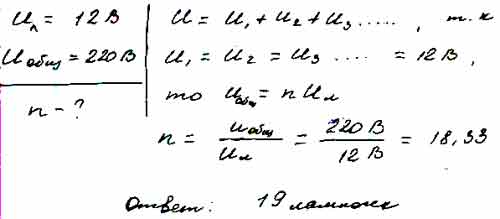 Uл = 12 В
Uобщ = 220 В
n - ?
U = U₁ + U₂ + U₃ ....., т.к
U₁ = U₂ = U₃ .... = 12 В,
то Uобщ = n Uл
n = Uобщ / Uл = 220 В / 12 В = 18,33
Ответ: 19 лампочек